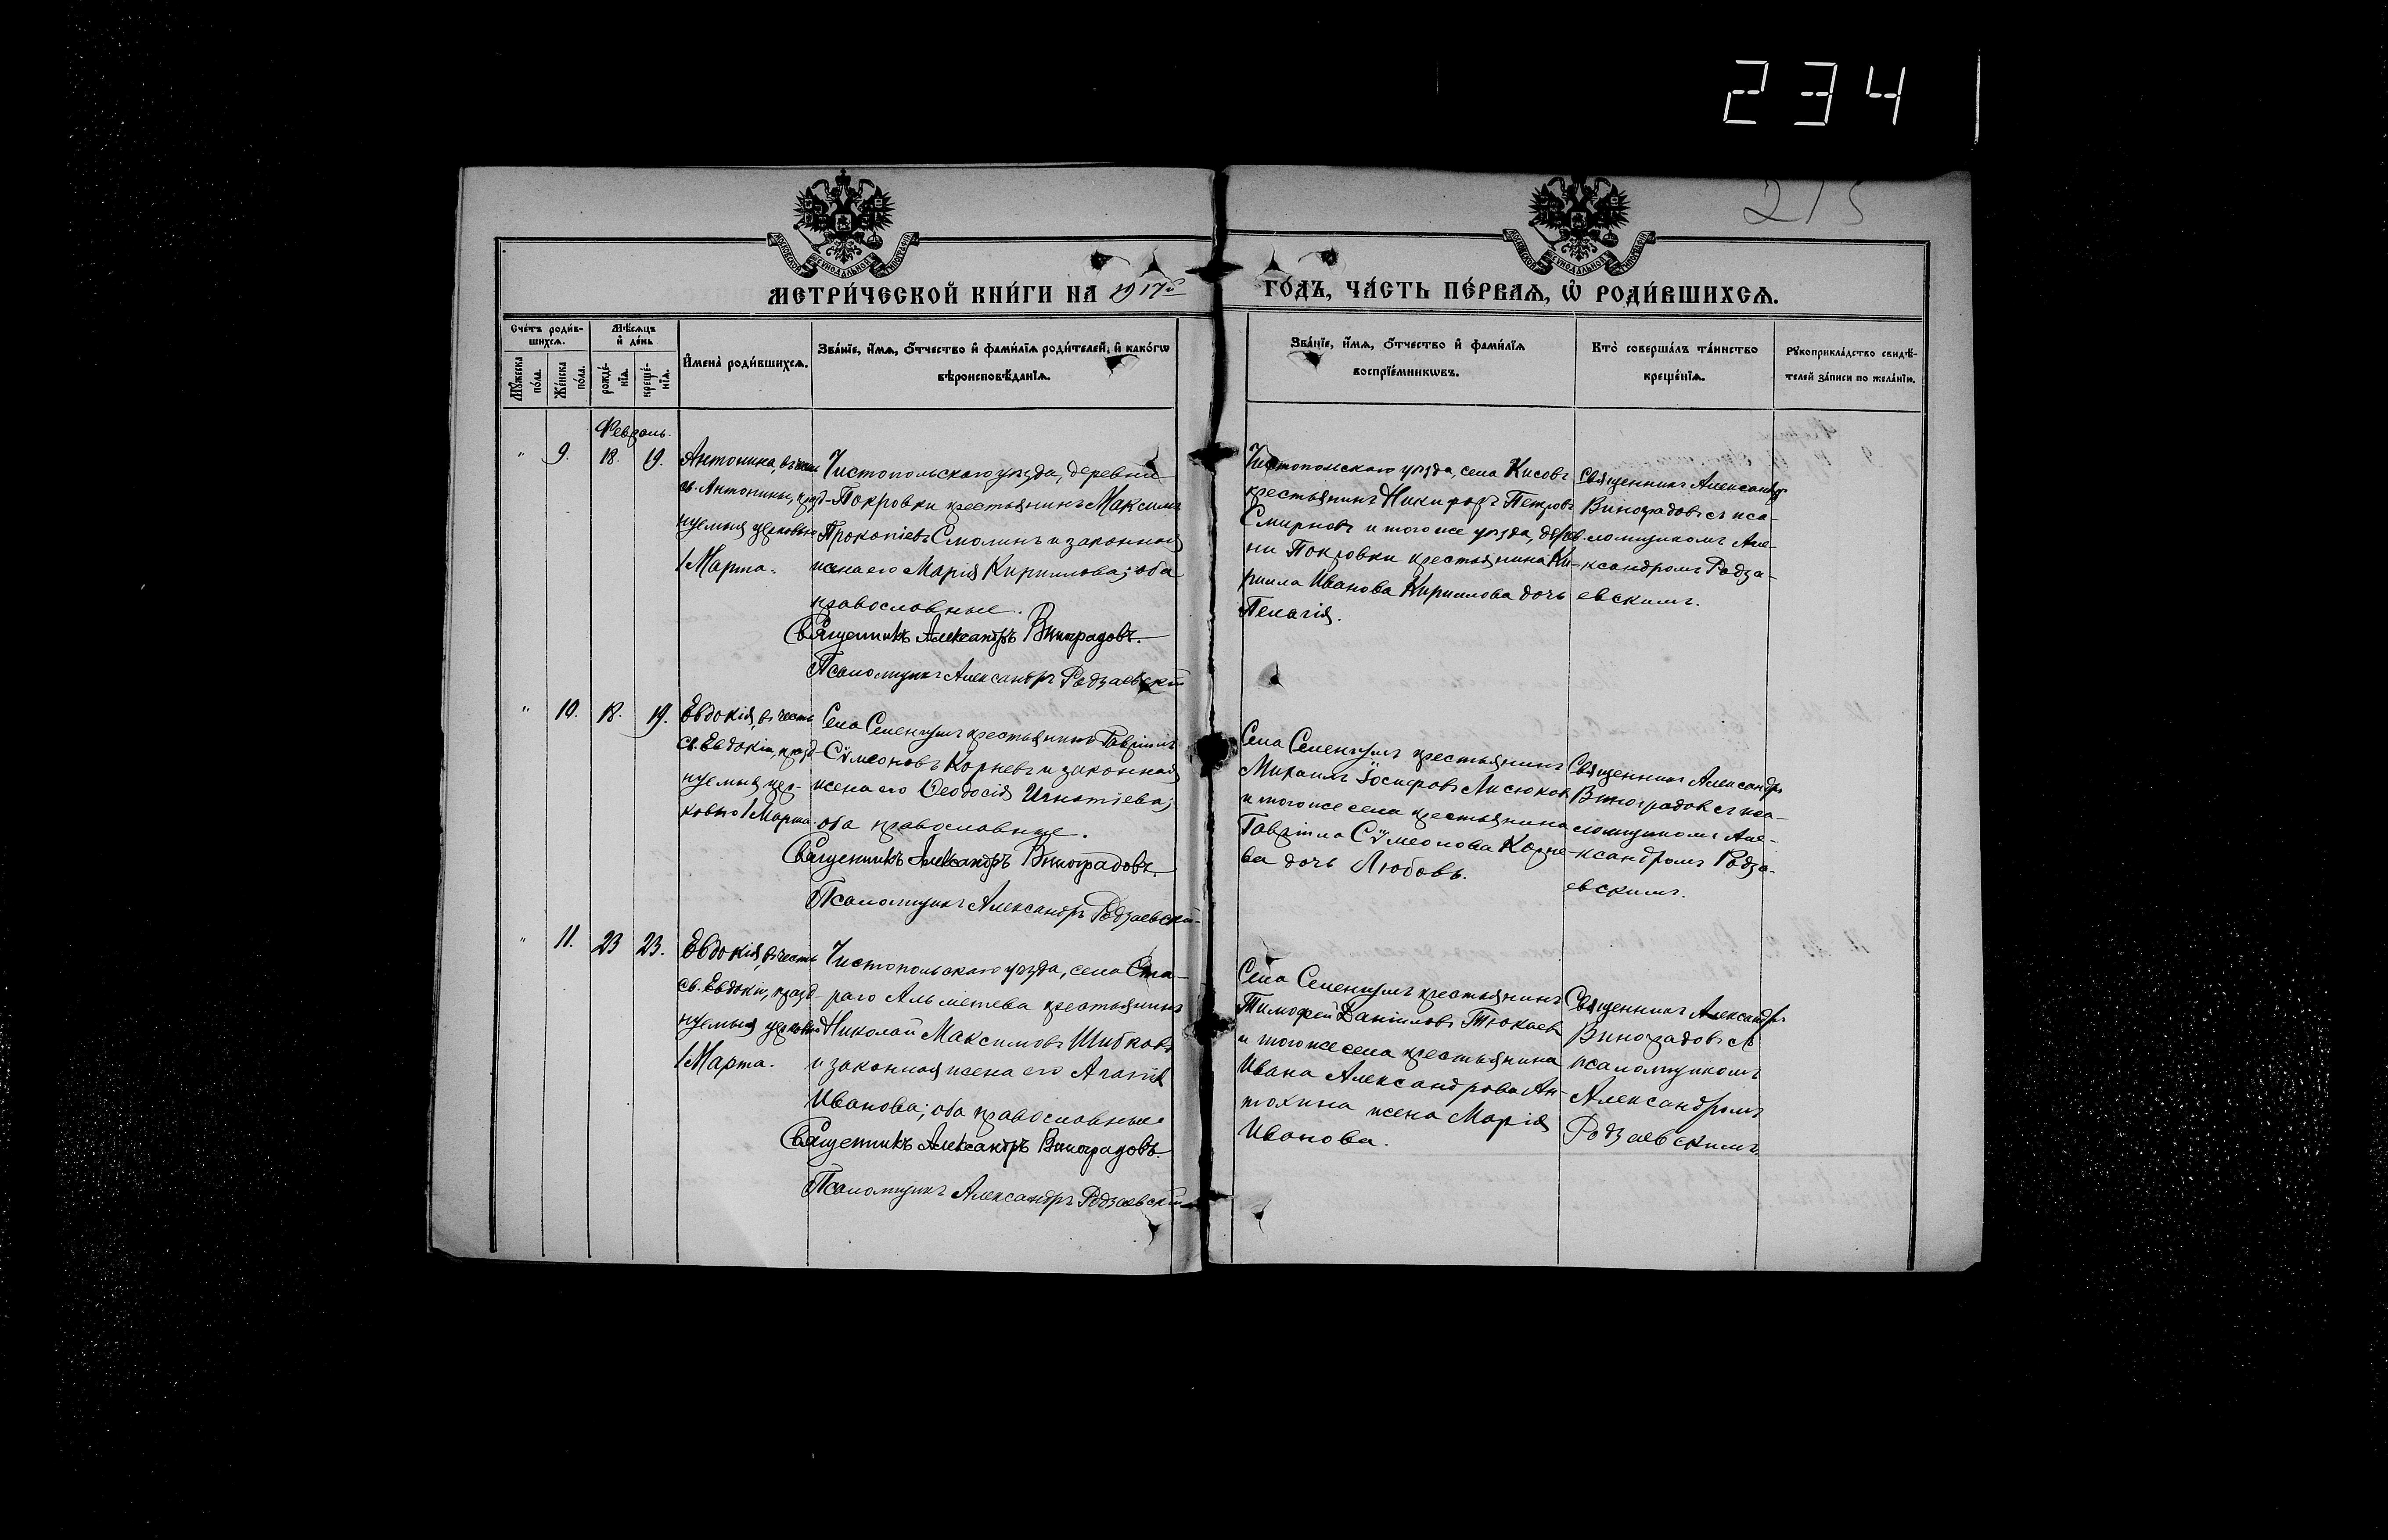 234
215
МОСКОВСКОЙ СѴНОДАЛЬНОЙ ТИПОГРАФІИ
МОСКОВСКОЙ СѴНОДАЛЬНОЙ ТИПОГРАФІИ
МЕТРИ́ЧЕСКОЙ КНИ́ГИ НА 1917й ГО́ДЪ, ЧА́СТЬ ПЕ́РВАѦ, Ѡ҆ РОДИ́ВШИХСѦ.
Сче́тъ роди́в-
шихсѧ.
Мꙋ́жеска
по́ла.
Же́нска
по́ла.
Мѣ́сѧцъ
и҆ де́нь
рожде́-
нїѧ.
креще́-
нїѧ.
И҆мена̀ роди́вшихсѧ.
Зва́нїе, и҆́мѧ, ѻ҆́тчество и҆ фами́лїѧ роди́телей, и҆ како́гѡ
вѣроисповѣ́данїѧ.
Зва́нїе, и҆́мѧ, ѻ҆́тчество и҆ фами́лїѧ
воспрїе́мникѡвъ.
Кто̀ соверша́лъ та́инство
креще́нїѧ.
Рꙋкоприкла́дство свидѣ́-
телей за́писи по жела́нїю.
Февраль.
" 9. 18. 19.
Антонина, въ честь
св. Антонины, празд-
нуемыя церковью
1 Марта.
Чистопольскаго уѣзда, деревни
Покровки крестьянинъ Максимъ
Прокопіевъ Смолинъ и законная
жена его Марія Кириллова; оба
православные.
Священникъ Александръ Виноградовъ.
Псаломщикъ Александръ Родзаевскій
Чистопольскаго уѣзда, села Кисовъ
крестьянинъ Никифоръ Петровъ
Смирновъ и того же уѣзда, дерев-
ни Покровки крестьянина Ки-
рилла Иванова Кириллова дочь
Пелагія.
Священникъ Александръ
Виноградовъ съ пса-
ломщикомъ Але-
ксандромъ Родза-
евскимъ.
" 10. 18. 19.
Евдокія, въ честь
св. Евдокіи, празд-
нуемыя цер-
ковью 1 Марта.
Села Селенгушъ крестьянинъ Гавріилъ
Сѵмеоновъ Корневъ и законная
жена его Ѳеодосія Игнатіева;
оба православные.
Священникъ Александръ Виноградовъ.
Псаломщикъ Александръ Родзаевскій
Села Селенгушъ крестьянинъ
Михаилъ Іосифовъ Лисюковъ
и того же села крестьянина
Гавріила Сѵмеонова Корне-
ва дочь Любовь.
Священникъ Александръ
Виноградовъ съ пса-
ломщикомъ Але-
ксандромъ Родза-
евскимъ.
" 11. 23 23.
Евдокія, въ честь
св. Евдокіи, празд-
нуемыя церковью
1 Марта.
Чистопольскаго уѣзда, села Ста-
раго Альметева крестьянинъ
Николай Максимовъ Шибковъ
и законная жена его Агапія
Иванова; оба православные
Священникъ Александръ Виноградовъ.
Псаломщикъ Александръ Родзаевскій
Села Селенгушъ крестьянинъ
Тимофей Даніиловъ Тюкаевъ
и того же села крестьянина
Ивана Александрова Ан-
тохина жена Марія
Иванова.
Священникъ Александръ
Виноградовъ съ
псаломщикомъ
Александромъ
Родзаевскимъ.